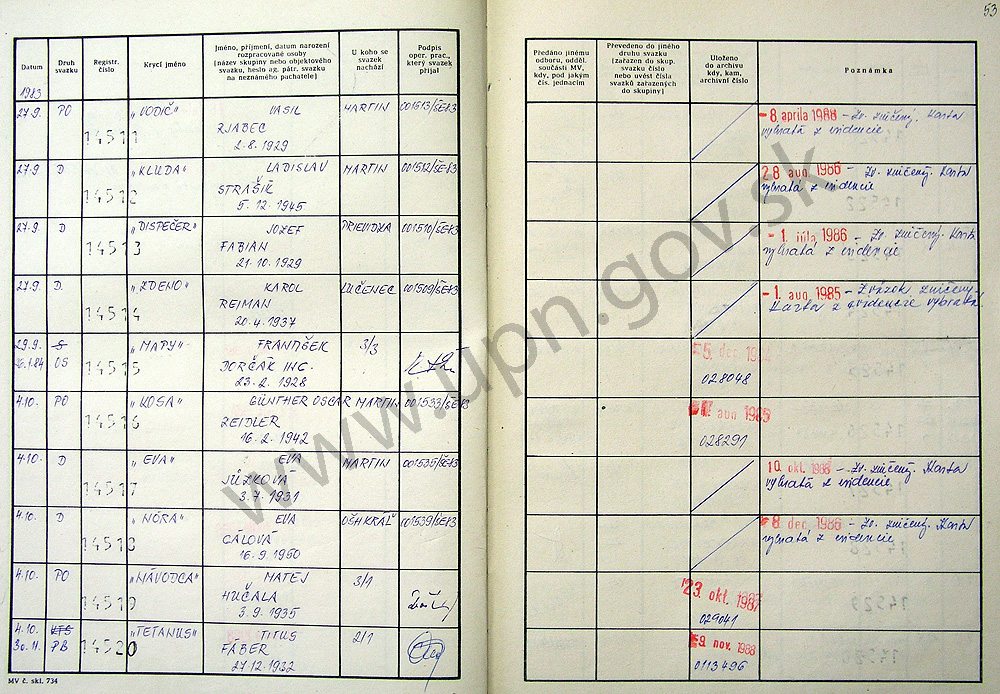 53
Datum
Druh svazku
Registr. číslo
Krycí jméno
Jméno, příjmení, datum narození
rozpracované osoby
(název skupiny nebo objektového
svazku, heslo ag. pátr. svazku
na neznámého pachatele)
U koho se
svazek
nachází
Podpis
oper. prac.,
který svazek
přijal
Předáno jinému
odboru, odděl.
součásti MV,
kdy, pod jakým
čís. jednacím
Převedeno do jiného
druhu svazku
(zařazen do skup.
svazku číslo
nebo uvést čísla
svazků zařazených
do skupiny)
Uloženo
do archivu
kdy, kam,
archivní číslo
Poznámka
1983
27.9. PO 14511 „VODIČ" VASIL MARTIN 001513/ŠE-83
RJABEC
2.8.1929
- 8. apríla 1988 - Zv. zničený. Karta
vybratá z evidencie
27.9 D 14512 „KLUDA" LADISLAV MARTIN 001512/ŠE-83
STRAŠÍK
5.12.1945
28. aug. 1986 - Zv. zničený. Karta
vybratá z evidencie
27.9. D 14513 „DISPEČER" JOZEF PRIEVIDZA 001510/ŠE-83
FABIAN
21.10.1929
- 1. júla 1986 - Zv. zničený. Karta
vybratá z evidencie
27.9. D. 14514 „ZDENO" KAROL LUČENEC 001509/ŠE-83
REIMAN
20.4.1937
- 1. aug. 1985 - Zväzok zničený.
Karta z evidencie vybratá
29.9. 14515 „MAPY" FRANTIŠEK 3/3
OS DORČÁK ING.
23.2.1928
5. dec.
028048
4.10. PO 14516 „KOSA" GÜNTHER OSCAR MARTIN 001533/ŠE-83
ZEIDLER
16.2.1942
aug 1985
028291
4.10. D 14517 „EVA" EVA MARTIN 001535/ŠE-83
JŮZKOVÁ
3.7.1931
10. okt. 1988 - Zv. zničený. Karta
vybratá z evidencie
4.10. D 14518 „NÓRA" EVA OŠH KRÁĽ 001539/ŠE-83
GÁLOVÁ
16.9.1950
- 8. dec. 1986 - Zv. zničený. Karta
vybratá z evidencie
4.10. PO 14519 „NÁVODCA" MATEJ 3/1
HUČALA
3.9.1935
23. okt. 1987
029041
4.10. KTS 14520 „TETANUS" TITUS 2/1
30.11. PB FÁBER
27.12.1932
9. nov. 1988
0113496
MV č. skl. 734
www.upn.gov.sk